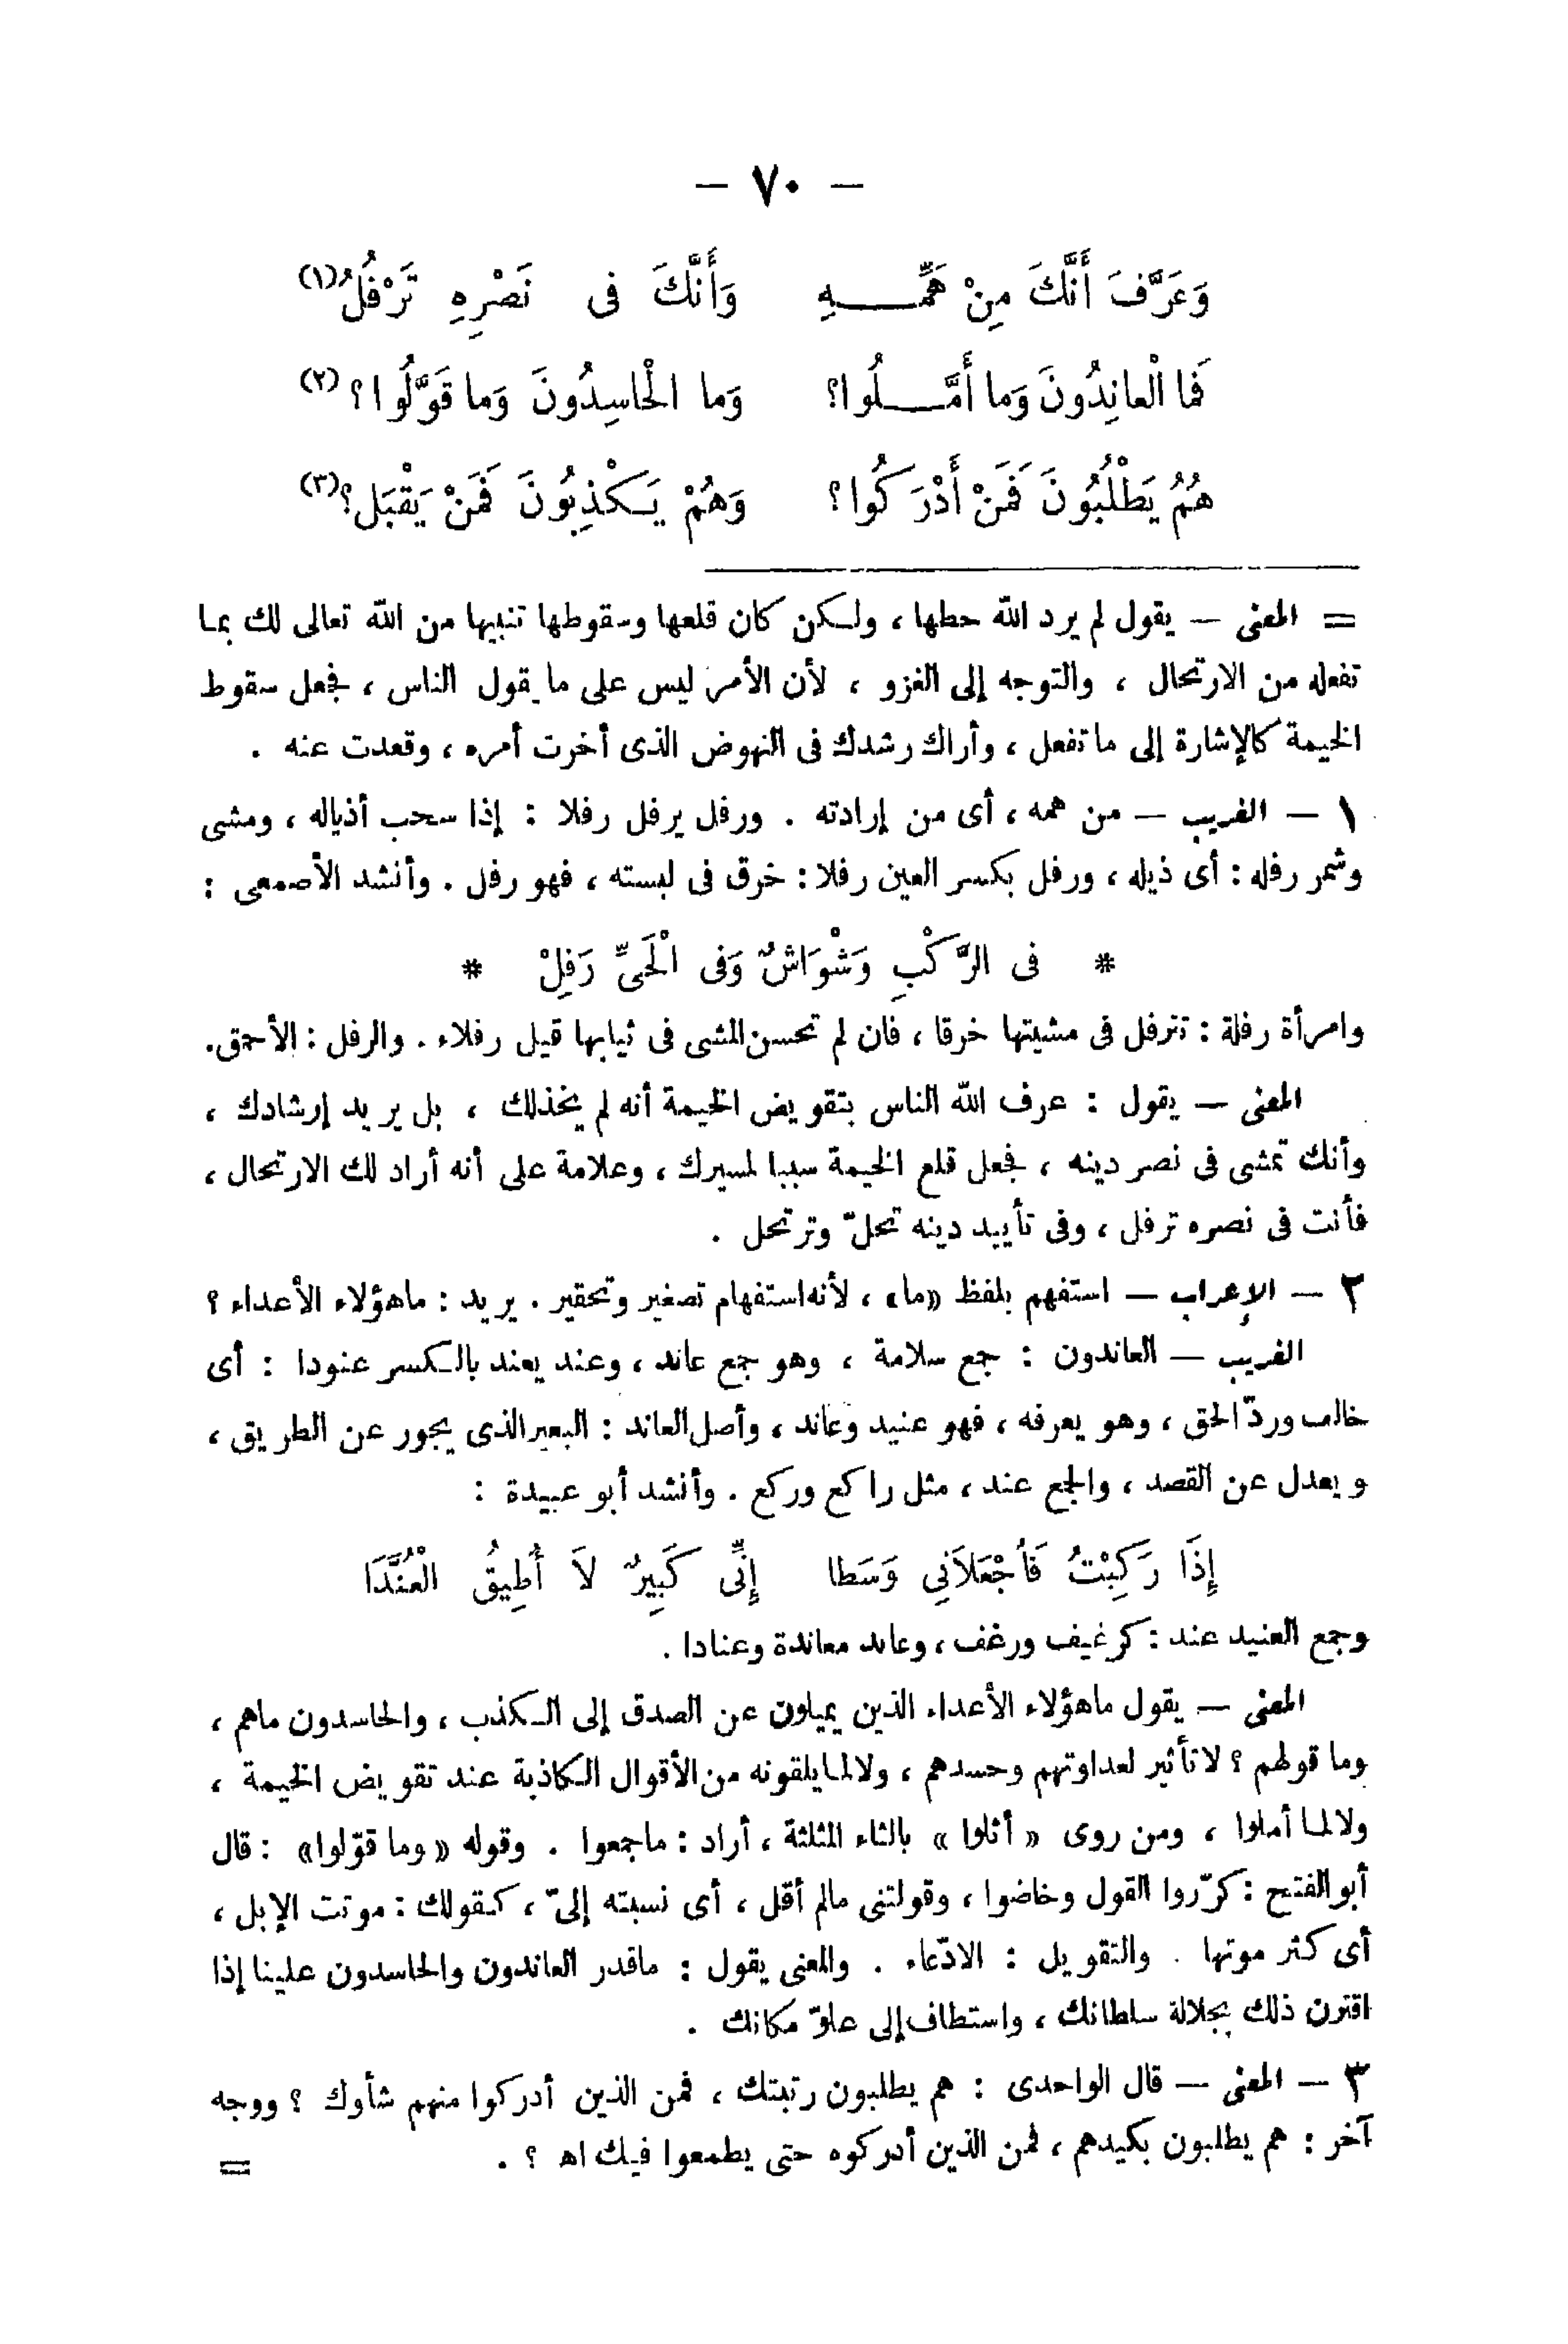 — ٧٠ —
وَعَرَّفَ أَنَّكَ مِنْ هَمِّـــهِ وَأَنَّكَ فى نَصْرِهِ تَرْفُلُ(١)
فَما الْعانِدُونَ وَما أَمَّـــلُوا؟ وَما الْحاسِدُونَ وَما قَوَّلُوا؟(٢)
هُمُ يَطْلُبُونَ فَمَنْ أَدْرَكُوا؟ وَهُمْ يَكْذِبُونَ فَمَنْ يَقْبَل؟(٣)
= المعنى — يقول لم يرد الله حطها ، ولكن كان قلعها وسقوطها تنبيها من الله تعالى لك بما
تفعله من الارتحال ، والتوجه إلى الغزو ، لأن الأمر ليس على ما يقول الناس ، فجعل سقوط
الخيمة كالإشارة إلى ما تفعل ، وأراك رشدك فى النهوض الذى أخرت أمره ، وقعدت عنه .
١ — الغريب — من همه ، أى من إرادته . ورفل يرفل رفلا : إذا سحب أذياله ، ومشى
وشمر رفله : أى ذيله ، ورفل بكسر العين رفلا : خرق فى لبسته ، فهو رفل . وأنشد الأصمعى :
* فى الرَّكْبِ وَشْوَاشٌ وَفى الْحَىِّ رَفِلْ *
وامرأة رفلة : تترفل فى مشيتها خرقا ، فان لم تحسن المشى فى ثيابها قيل رفلاء . والرفل : الأحمق.
المعنى — يقول : عرف الله الناس بتقويض الخيمة أنه لم يخذلك ، بل يريد إرشادك ،
وأنك تمشى فى نصر دينه ، فجعل قلع الخيمة سببا لمسيرك ، وعلامة على أنه أراد لك الارتحال ،
فأنت فى نصره ترفل ، وفى تأييد دينه تحلّ وترتحل .
٢ — الإعراب — استفهم بلفظ «ما» ، لأنه استفهام تصغير وتحقير . يريد : ماهؤلاء الأعداء ؟
الغريب — العاندون : جمع سلامة ، وهو جمع عاند ، وعند يعند بالكسر عنودا : أى
خالف وردّ الحق ، وهو يعرفه ، فهو عنيد وعاند ، وأصل العاند : البعير الذى يجور عن الطريق ،
ويعدل عن القصد ، والجمع عند ، مثل راكع وركع . وأنشد أبو عبيدة :
إِذَا رَكِبْتُ فَأجْعَلاَنِى وَسَطا إِنِّى كَبِيرٌ لاَ أُطِيقُ الْعُنَّدَا
وجمع العنيد عند : كرغيف ورغف ، وعاند معاندة وعنادا .
المعنى — يقول ماهؤلاء الأعداء الذين يميلون عن الصدق إلى الكذب ، والحاسدون ماهم ،
وما قولهم ؟ لا تأثير لعداوتهم وحسدهم ، ولا لما يلقونه من الأقوال الكاذبة عند تقويض الخيمة ،
ولا لما أملوا ، ومن روى « أثلوا » بالثاء المثلثة ، أراد : ماجمعوا . وقوله « وما قوّلوا» : قال
أبو الفتح : كرّروا القول وخاضوا ، وقولتنى مالم أقل ، أى نسبته إلىّ ، كقولك : موتت الإبل ،
أى كثر موتها . والتقويل : الادّعاء . والمعنى يقول : ماقدر العاندون والحاسدون علينا إذا
اقترن ذلك بجلالة سلطانك ، واستطاف إلى علوّ مكانك .
٣ — المعنى — قال الواحدى : هم يطلبون رتبتك ، فمن الذين أدركوا منهم شأوك ؟ ووجه
آخر : هم يطلبون بكيدهم ، فمن الذين أدركوه حتى يطمعوا فيك اه ؟ .
=